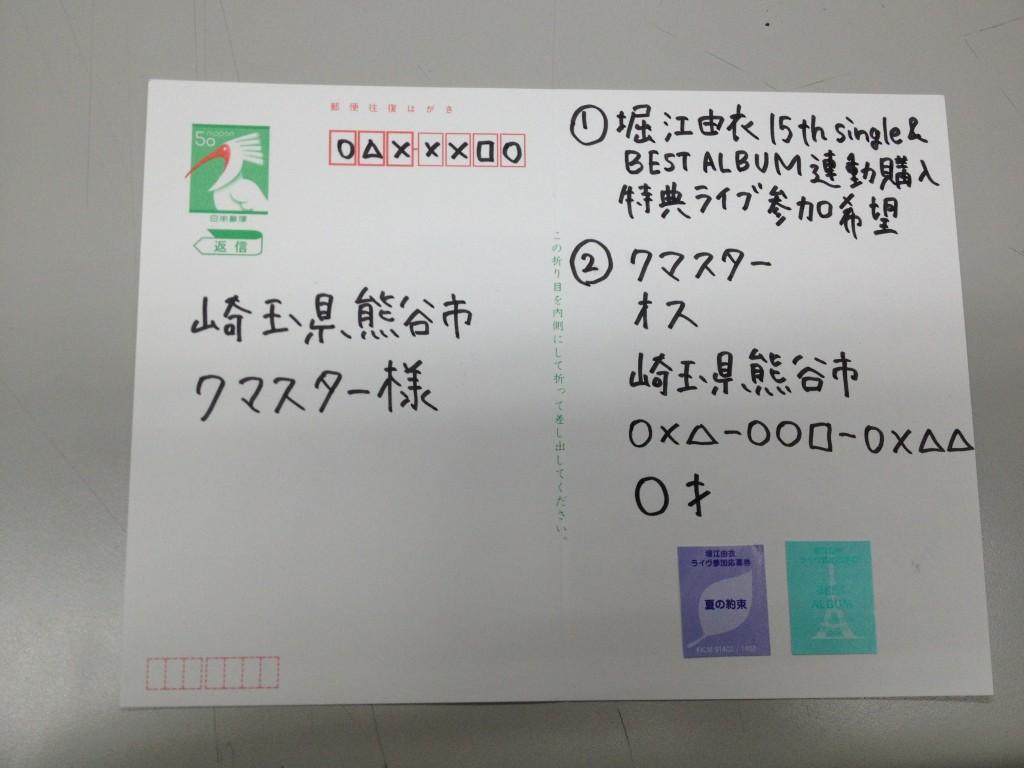 郵便往復はがき
50
nippon
日本郵便
返信
○△×-××□○
崎玉県熊谷市
クマスター様
この折り目を内側にして折って差し出してください。
① 堀江由衣 15th single &
BEST ALBUM 連動購入
特典ライブ参加希望
② クマスター
オス
崎玉県熊谷市
○×△-○○□-○×△△
○才
堀江由衣
ライヴ参加応募券
夏の約束
BEST
ALBUM